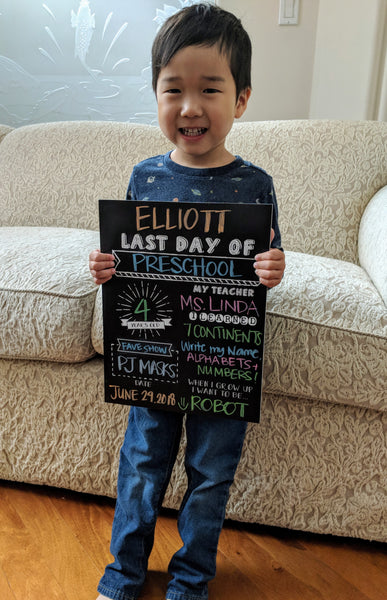 ELLIOTT
LAST DAY OF
PRESCHOOL
4
YEARS OLD
FAVE SHOW
PJ MASKS
DATE
JUNE 29.2018
MY TEACHER
MS. LINDA
I LEARNED
7 CONTINENTS
Write my Name
ALPHABETS +
NUMBERS!
WHEN I GROW UP
I WANT TO BE...
ROBOT